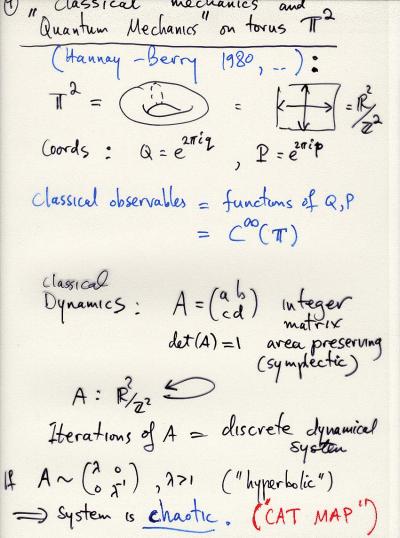 ① "Classical mechanics and
Quantum Mechanics" on torus 𝕋²
(Hannay-Berry 1980, ...):
𝕋² = = = ℝ²/ℤ²
Coords: Q = e^{2πiq}, P = e^{2πip}
Classical observables = functions of Q,P
= C^∞(𝕋)
Classical
Dynamics: A = (a b
c d) integer
matrix
det(A) = 1 area preserving
(symplectic)
A: ℝ²/ℤ²
Iterations of A = discrete dynamical
system
If A ~ (λ 0
0 λ⁻¹), λ>1 ("hyperbolic")
⟹ System is chaotic. ("CAT MAP")